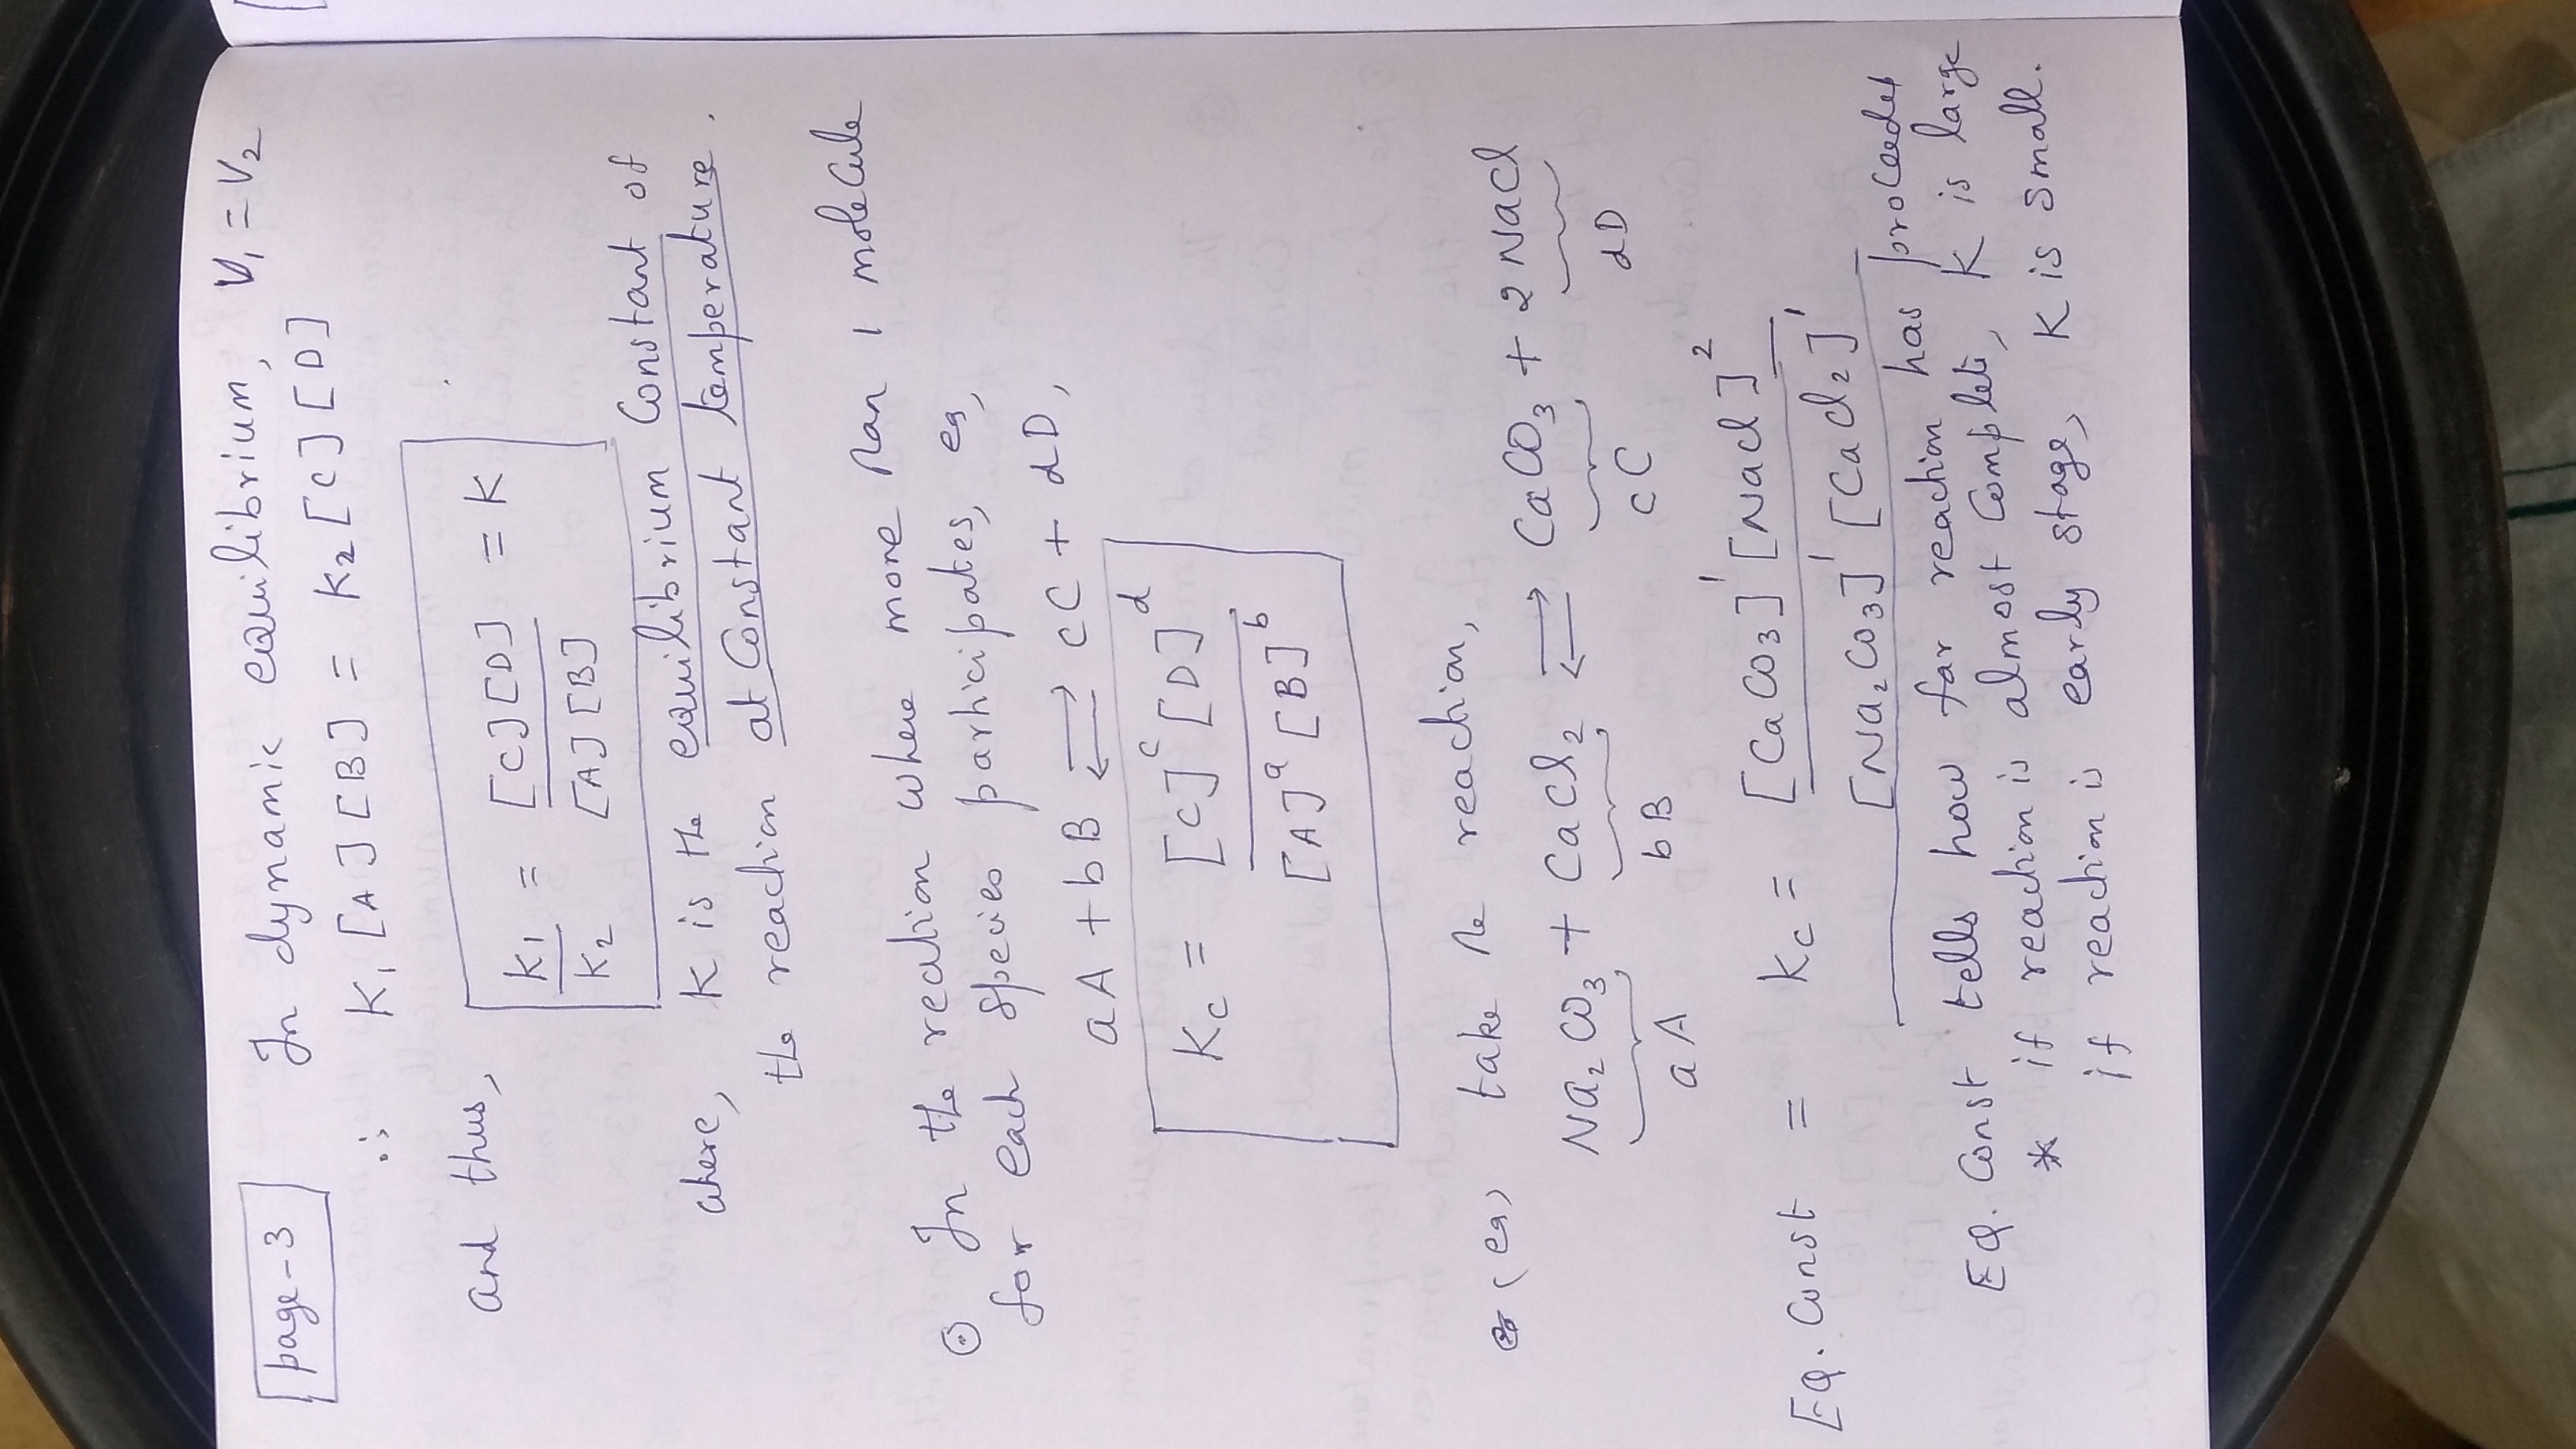 page-3
In dynamic equilibrium, V₁ = V₂
∴ K₁ [A] [B] = K₂ [C] [D]
and thus, K₁/K₂ = [C][D]/[A][B] = K
where, K is the equilibrium Constant of
the reaction at Constant temperature.
⊙ In the reation where more than 1 molecule
for each species participates, eg,
aA + bB ⇌ cC + dD,
Kc = [C]ᶜ [D]ᵈ / [A]ᵃ [B]ᵇ
(eg) take the reaction,
Na₂CO₃ + CaCl₂ ⇌ CaCO₃ + 2NaCl
aA bB cC dD
EQ. Const = Kc = [CaCO₃]¹ [NaCl]² / [Na₂CO₃]¹ [CaCl₂]¹
EQ. Const tells how far reaction has proceeded
* if reaction is almost Complete, K is large
if reaction is early stage, K is small.